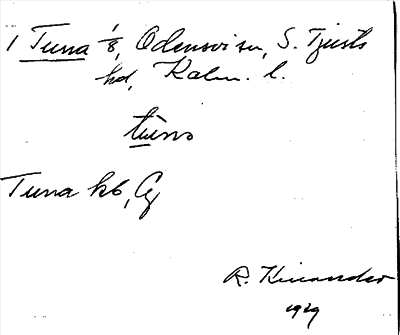 1 Tuna 1/8, Odensvi sn, S. Tjusts
hd, Kalm. l.
tùna
Tuna kb, Gj
R. Kinander
1929